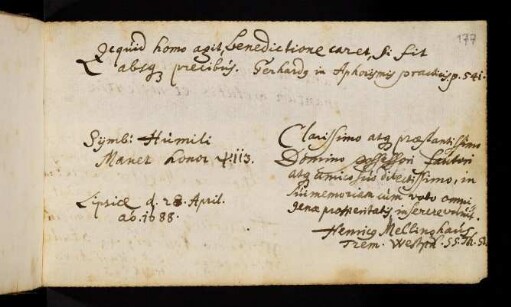 177
Quicquid homo agit, benedictione caret, si fit
absq; precibus. Gerhardq in Aphorismis practicis, p. 541.
Symb: Humili
Manet honor
Clarissimo atq præstantissimo
Domino possessori fautori
atq amico suo dilectissimo, in
sui memoriam cum voto omni¬
genæ prosperitatis inserere voluit.
Lipsiæ d. 28. April.
ao. 1688.
Henricq Mellinghaus
Trem. Westph. SS. Th. St.